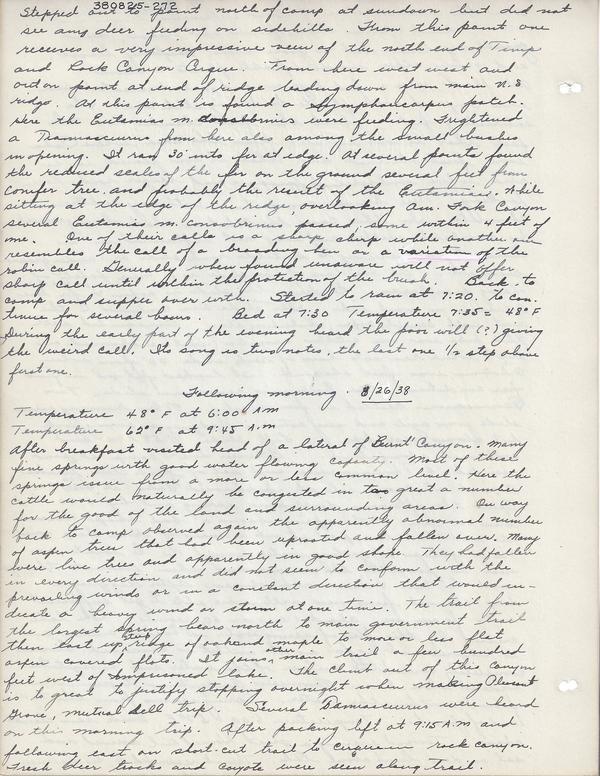 380825-272
Stepped out to point north of camp at sundown but did not
see any deer feeding on sidehills. From this point one
receives a very impressive view of the north end of Timp
and Rock Canyon Cirque. From here went west and
out on point at end of ridge leading down from main N.S
ridge. At this point is found a Symphoricarpus patch.
Here the Eutamias m. consobrinus were feeding. Frightened
a Tamiasciurus from here also among the small bushes
in opening. It ran 30' into fir at edge. At several points found
the reduced scales of the fir on the ground several feet from
conifer tree and probably the result of the Eutamias. While
sitting at the edge of the ridge, overlooking Am. Fork Canyon
several Eutamias m. consobrinus passed, some within 4 feet of
me. One of their calls is a sharp cherp while another one
resembles the call of a brooding hen or a variation of the
robin call. Generally when found unaware will not offer
sharp call until within the protection of the brush. Back to
camp and supper over with. Started to rain at 7:20. To con-
tinue for several hours. Bed at 7:30 Temperature 7:35= 48° F
During the early part of the evening heard the poor will (?) giving
the weird call. Its song is two notes, the last one 1/2 step above
first one.
Following morning. 8/26/38
Temperature 48° F at 6:00 A.M
Temperature 62° F at 9:45 A.M
After breakfast visited head of a lateral of Burnt Canyon. Many
fine springs with good water flowing capacity. Most of these
springs issue from a more or less common level. Here the
cattle would naturally be congested in too great a number
for the good of the land and surrounding areas. On way
back to camp observed again the apparently abnormal number
of aspen trees that had been uprooted and fallen over. Many
were live trees and apparently in good shape. They had fallen
in every direction and did not seem to conform with the
prevailing winds or in a constant direction that would in-
dicate a heavy wind or storm at one time. The trail from
the largest spring bears north to main government trail
then east up steep ridge of oak and maple to more or less flat
aspen covered flats. It joins other main trail a few hundred
feet west of lake. The climb out of this canyon
is to great to justify stopping overnight when making Pleasant
Grove, mutual dell trip. Several Tamiasciurus were heard
on this morning trip. After packing left at 9:15 A.M and
following east on short-cut trail to cirque in rock canyon.
Fresh deer tracks and coyote were seen along trail.